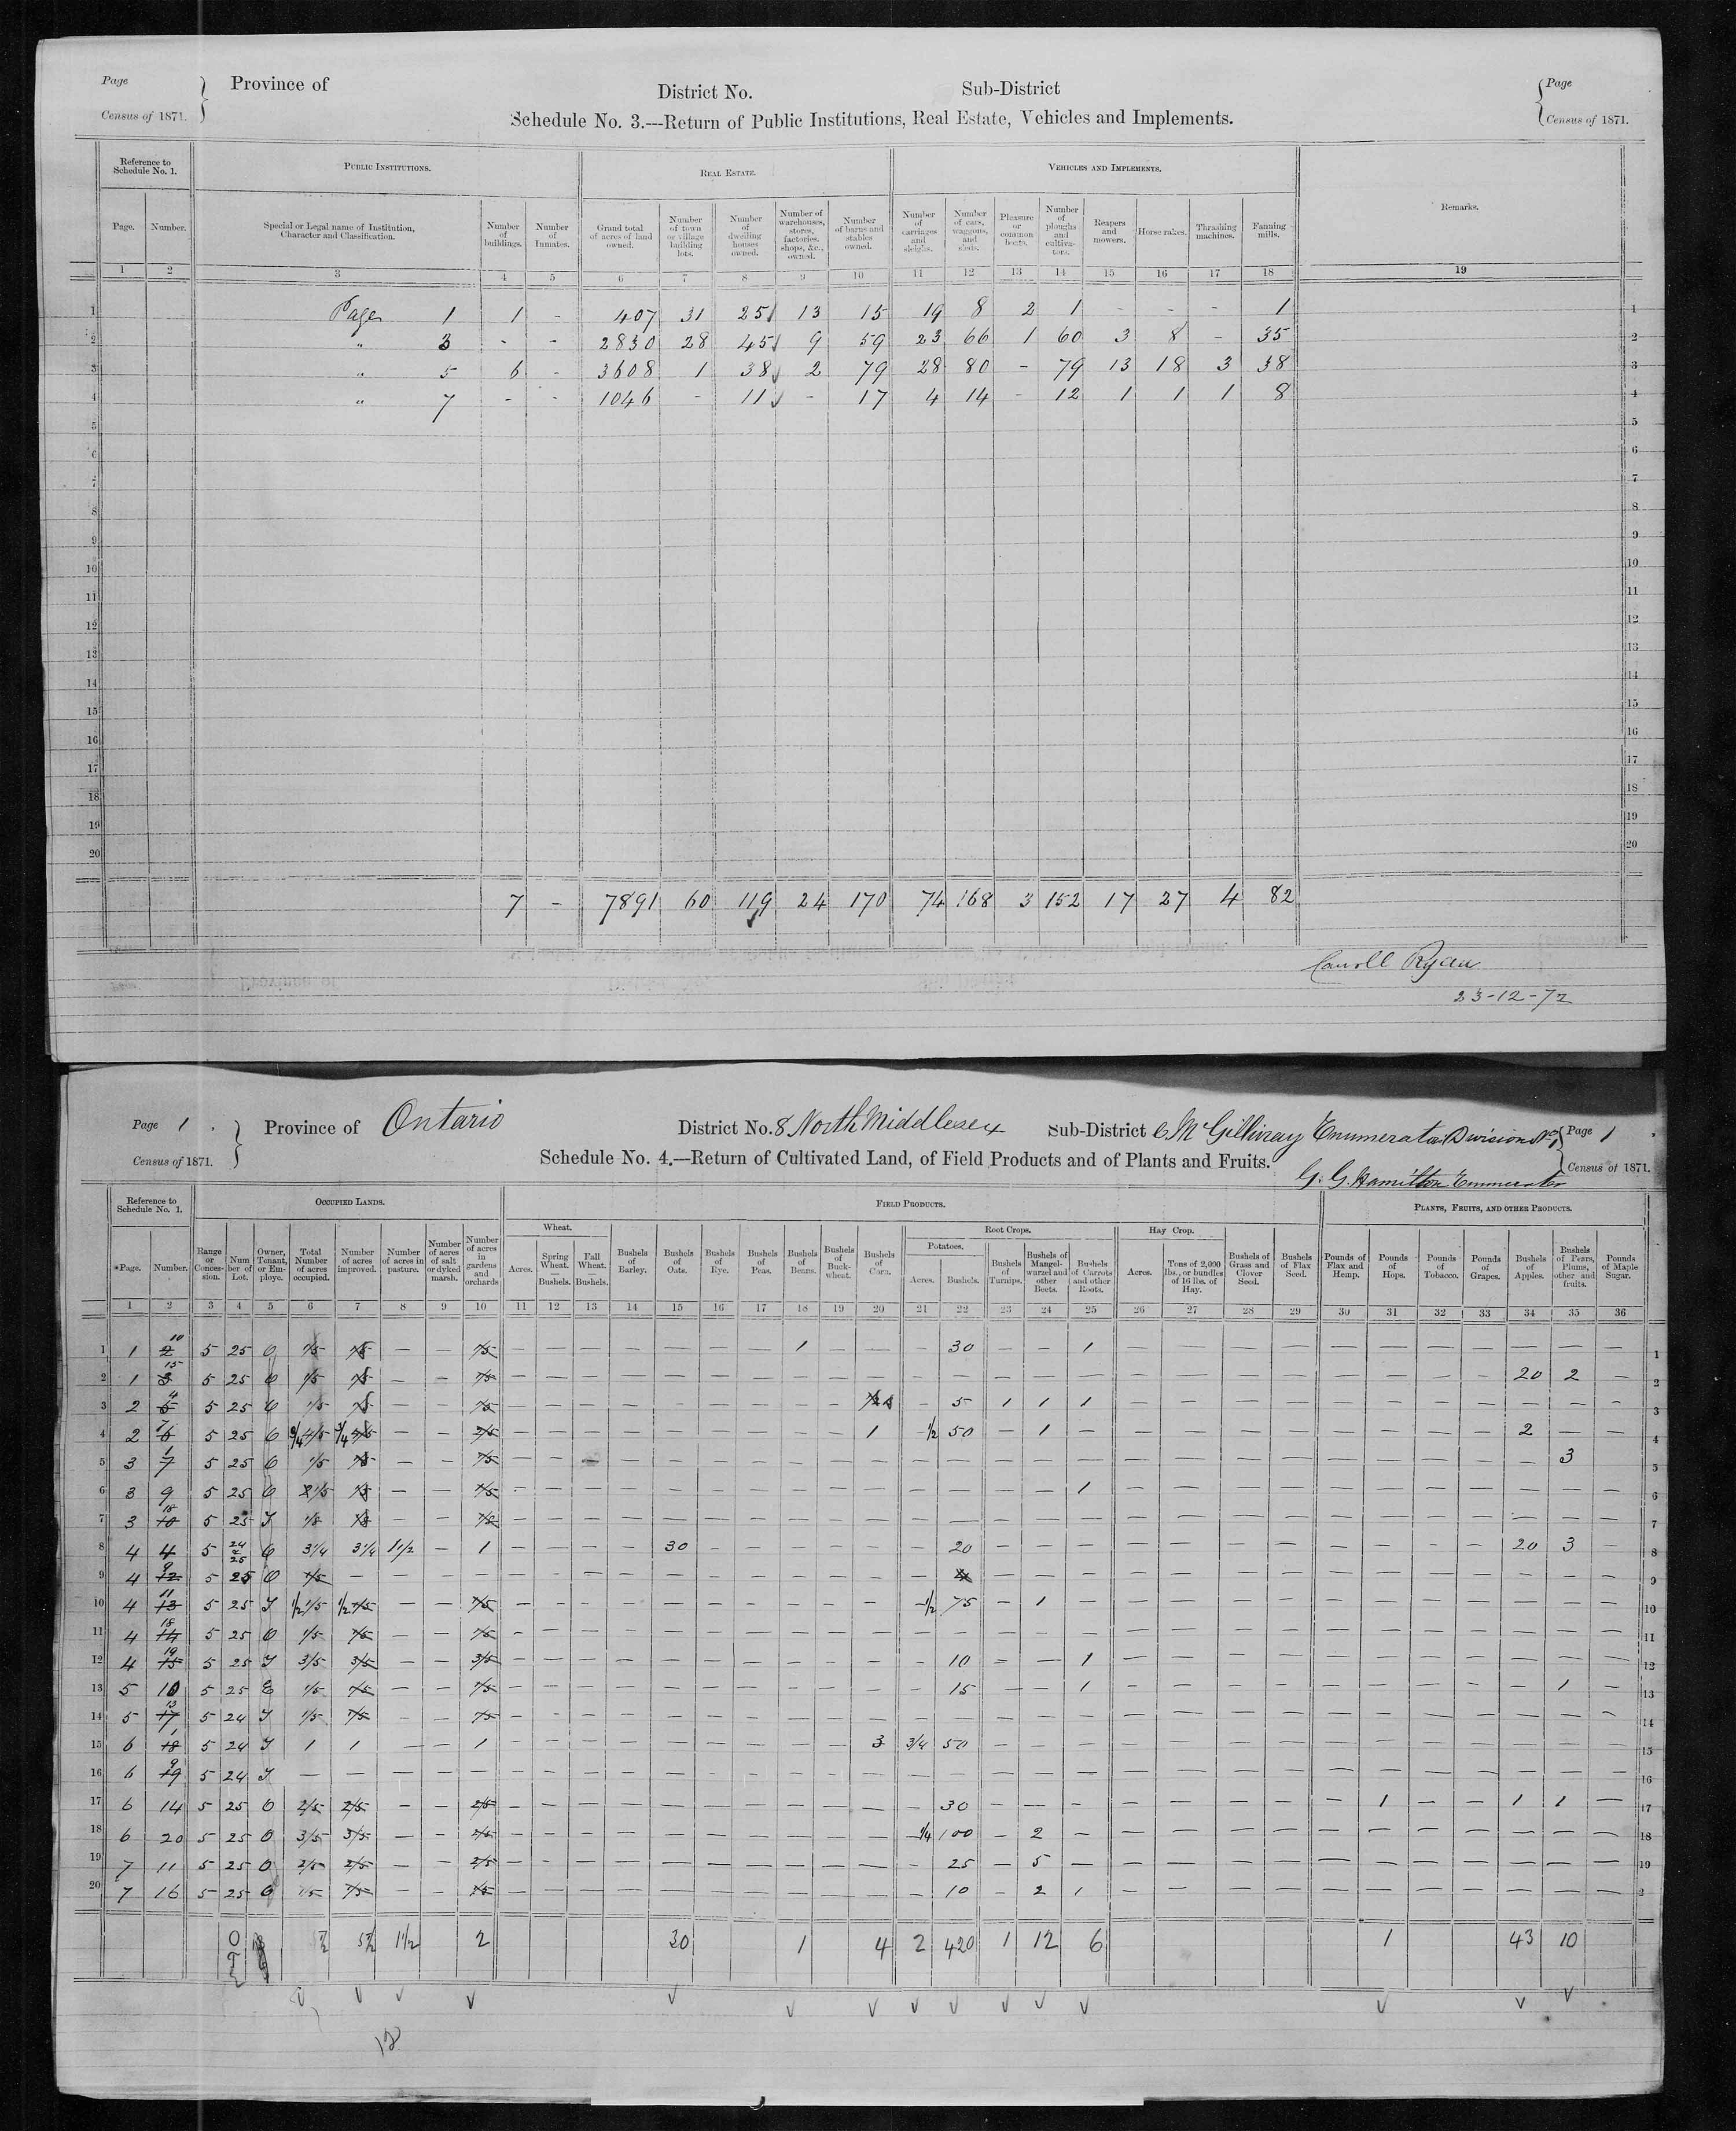 Page
Province of
District No.
Sub-District
Page
Census of 1871.
Schedule No. 3.—Return of Public Institutions, Real Estate, Vehicles and Implements.
Census of 1871.
Reference to Schedule No. 1.
PUBLIC INSTITUTIONS.
REAL ESTATE.
VEHICLES AND IMPLEMENTS.
Remarks.
Page.
Number.
Special or Legal name of Institution, Character and Classification.
Number of buildings.
Number of Inmates.
Grand total of acres of land owned.
Number of town or village building lots.
Number of dwelling houses owned.
Number of warehouses, stores, factories, shops, &c., owned.
Number of barns and stables owned.
Number of carriages and sleighs.
Number of cars, waggons, and sleds.
Pleasure or common boats.
Number of ploughs and cultivators.
Reapers and mowers.
Horse rakes.
Thrashing machines.
Fanning mills.
1 2 3 4 5 6 7 8 9 10 11 12 13 14 15 16 17 18 19
1 Page 1 1 - 407 31 25 13 15 19 8 2 1 - - - 1 1
2 " 3 - - 2830 28 45 9 59 23 66 1 60 3 8 - 35 2
3 " 5 6 - 3608 1 38 2 79 28 80 - 79 13 18 3 38 3
4 " 7 - - 1046 - 11 - 17 4 14 - 12 1 1 1 8 4
5 5
6 6
7 7
8 8
9 9
10 10
11 11
12 12
13 13
14 14
15 15
16 16
17 17
18 18
19 19
20 20
7 - 7891 60 119 24 170 74 168 3 152 17 27 4 82
Carroll Ryan
23-12-72
Page 1
Province of Ontario
District No. 8 North Middlesex
Sub-District C McGillivray Enumerator Division No 1
Page 1
Census of 1871.
Schedule No. 4.—Return of Cultivated Land, of Field Products and of Plants and Fruits.
Census of 1871.
G. G. Hamilton Enumerator
Reference to Schedule No. 1.
OCCUPIED LANDS.
FIELD PRODUCTS.
PLANTS, FRUITS, AND OTHER PRODUCTS.
Wheat.
Root Crops.
Hay Crop.
Potatoes.
*Page.
Number.
Range or Concession.
Number of Lot.
Owner, Tenant, or Employe.
Total Number of acres occupied.
Number of acres improved.
Number of acres in pasture.
Number of acres of salt or dyked marsh.
Number of acres in gardens and orchards
Acres.
Spring Wheat. — Bushels.
Fall Wheat. — Bushels.
Bushels of Barley.
Bushels of Oats.
Bushels of Rye.
Bushels of Peas.
Bushels of Beans.
Bushels of Buckwheat.
Bushels of Corn.
Acres.
Bushels.
Bushels of Turnips.
Bushels of Mangel-wurzel and other Beets.
Bushels of Carrots and other Roots.
Acres.
Tons of 2,000 lbs., or bundles of 16 lbs. of Hay.
Bushels of Grass and Clover Seed.
Bushels of Flax Seed.
Pounds of Flax and Hemp.
Pounds of Hops.
Pounds of Tobacco.
Pounds of Grapes.
Bushels of Apples.
Bushels of Pears, Plums, other and fruits.
Pounds of Maple Sugar.
1 2 3 4 5 6 7 8 9 10 11 12 13 14 15 16 17 18 19 20 21 22 23 24 25 26 27 28 29 30 31 32 33 34 35 36
1 1 10 5 25 O 1/5 1/5 — — 1/5 1 30 1 1
2 1 15 5 25 O 1/5 1/5 — — 1/5 20 2 2
3 2 4 5 25 O 1/5 1/5 — — 1/5 5 1 1 1 3
4 2 7 5 25 O 3/4 3/4 — — 2/5 1 1/2 50 1 2 4
5 3 1 5 25 O 1/5 1/5 — — 1/5 3 5
6 3 9 5 25 O 1/5 1/5 — — 1/5 1 6
7 3 18 5 25 T 1/8 1/8 — — 1/8 7
8 4 4 5 24 & 25 O 3 1/4 3 1/4 1 1/2 — 1 30 20 20 3 8
9 4 9 5 25 O 1/5 — — — — 9
10 4 11 5 25 T 1/2 1/5 1/2 1/5 — — 1/5 1/2 75 1 10
11 4 18 5 25 O 1/5 1/5 — — 1/5 11
12 4 19 5 25 T 3/5 3/5 — — 3/5 10 1 12
13 5 10 5 25 E 1/5 1/5 — — 1/5 15 1 1 13
14 5 13 5 24 T 1/5 1/5 — — 1/5 14
15 6 1 5 24 T 1 1 — — 1 3 3/4 50 15
16 6 9 5 24 T — — — — — 16
17 6 14 5 25 O 2/5 2/5 — — 2/5 30 1 1 1 17
18 6 20 5 25 O 3/5 3/5 — — 1/4 100 2 18
19 7 11 5 25 O 2/5 2/5 — — 2/5 25 5 19
20 7 16 5 25 O 1/5 1/5 — — 1/5 10 2 1 2
1 1/2 2 30 1 4 2 420 1 12 6 1 43 10